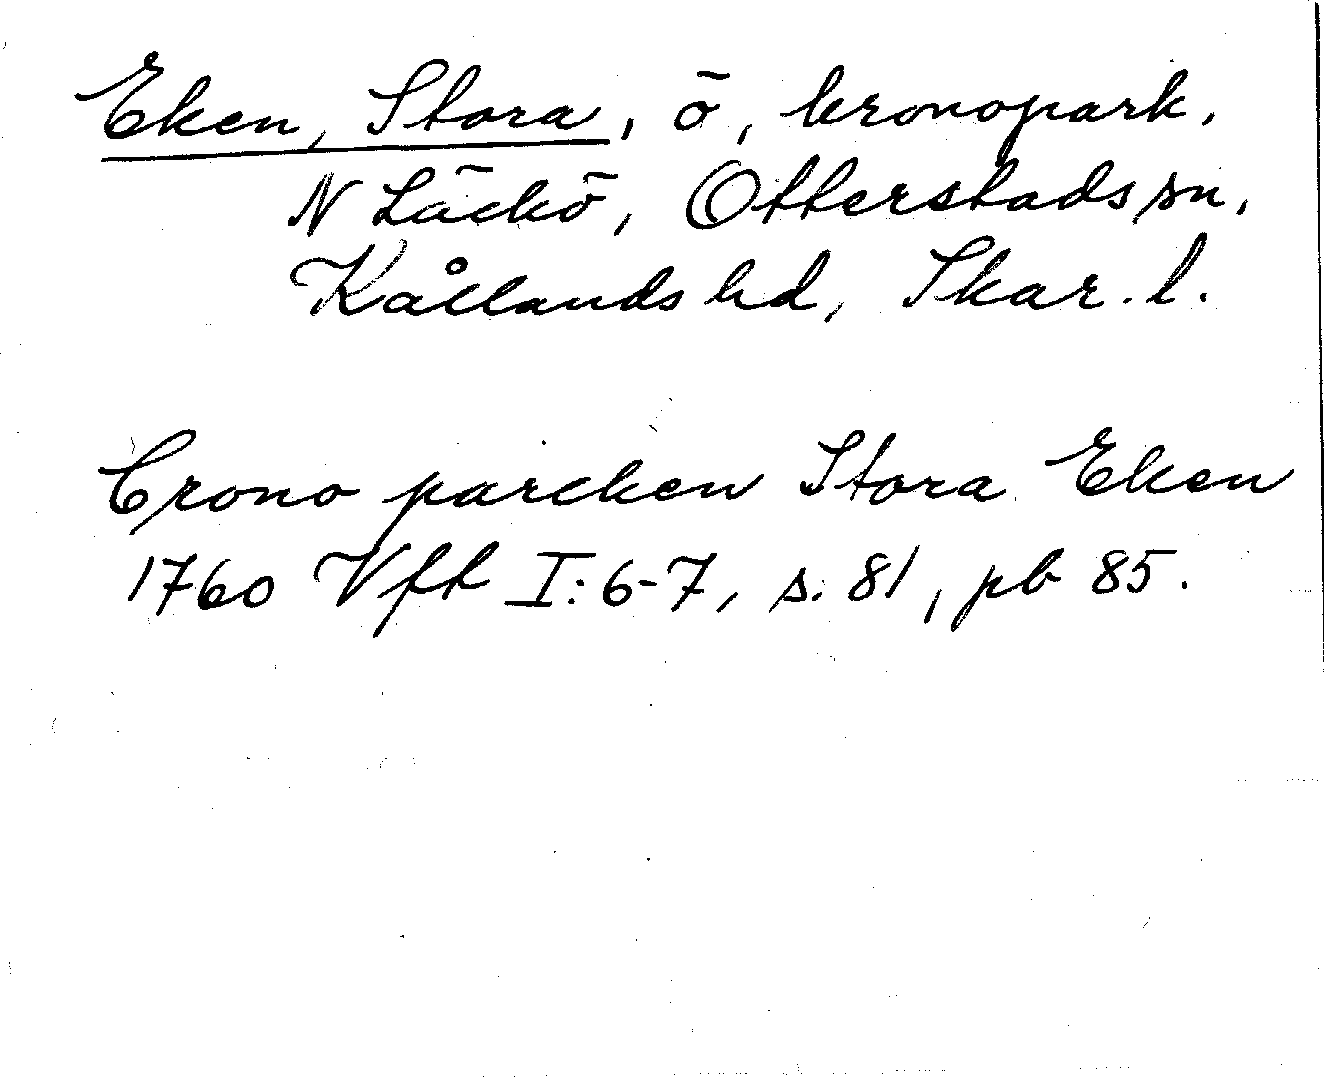 Eken, Stora, ö, kronopark,
N Läckö, Otterstads sn,
Kållands hd, Skar. l.
Crono parcken Stora Eken
1760 Vft I:6-7, s. 81, pb 85.